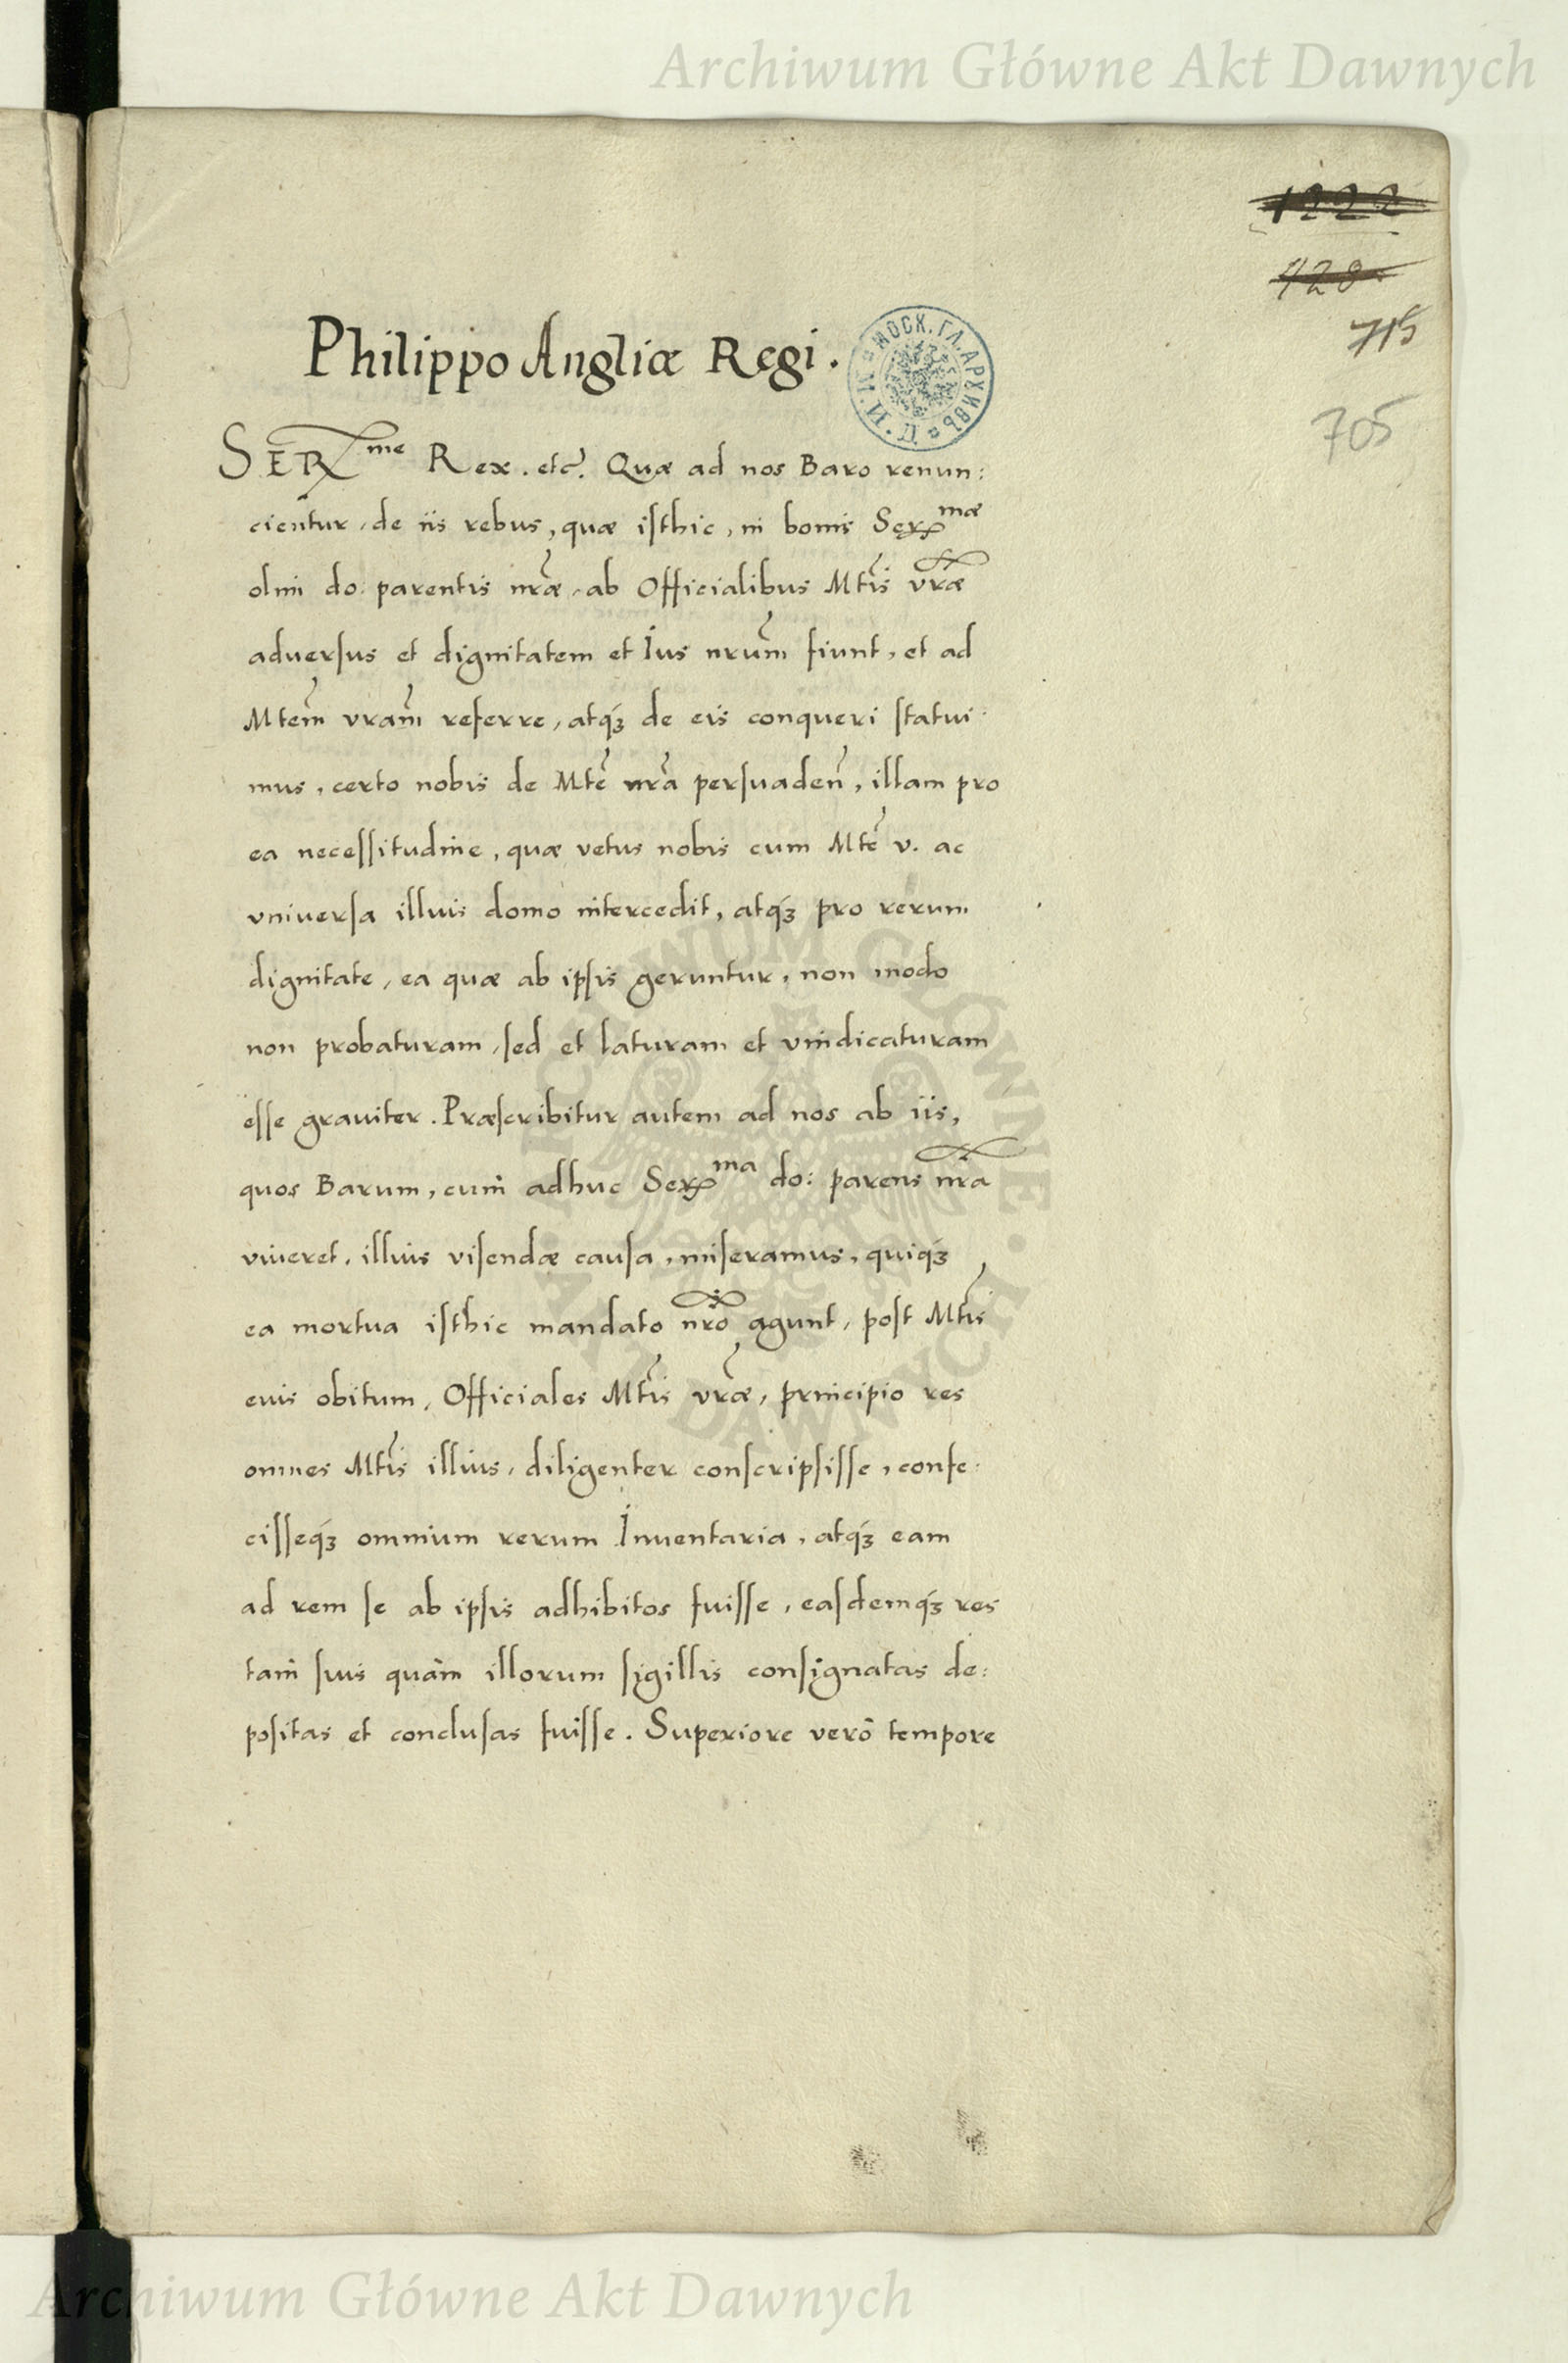 Archiwum Główne Akt Dawnych
1222
720
715
705
Philippo Angliæ Regi.
МОСК. ГЛ. АРХИВЪ
SER^me Rex. etc. Quæ ad nos Baro renun:
cientur, de iis rebus, quæ isthic, in bonis Ser^mæ
olim do: parentis nræ, ab Officialibus Mtis vræ
adversus et dignitatem et Ius nrum fiunt, et ad
Mtem vram referre, atq3 de eis conqueri statui
mus, certo nobis de Mte vra persuaden, illam pro
ea necessitudine, quæ vetus nobis cum Mte v. ac
vniversa illius domo intercedit, atq3 pro rerum
dignitate, ea quæ ab ipsis geruntur, non modo
non probaturam, sed et laturam et vindicaturam
esse graviter. Præscribitur autem ad nos ab iis,
quos Barum, cum adhuc Ser^ma do: parens nra
viveret, illius visendæ causa, miseramus, quiq3
ea mortua isthic mandato nro agunt, post Mtis
eius obitum, Officiales Mtis vræ, principio res
omnes Mtis illius, diligenter conscripsisse, confe:
cisseq3 omnium rerum Inventaria, atq3 eam
ad rem se ab ipsis adhibitos fuisse, easdemq3 res
tam suis quàm illorum sigillis consignatas de:
positas et conclusas fuisse. Superiore verò tempore
ARCHIWUM GŁÓWNE AKT DAWNYCH
Archiwum Główne Akt Dawnych